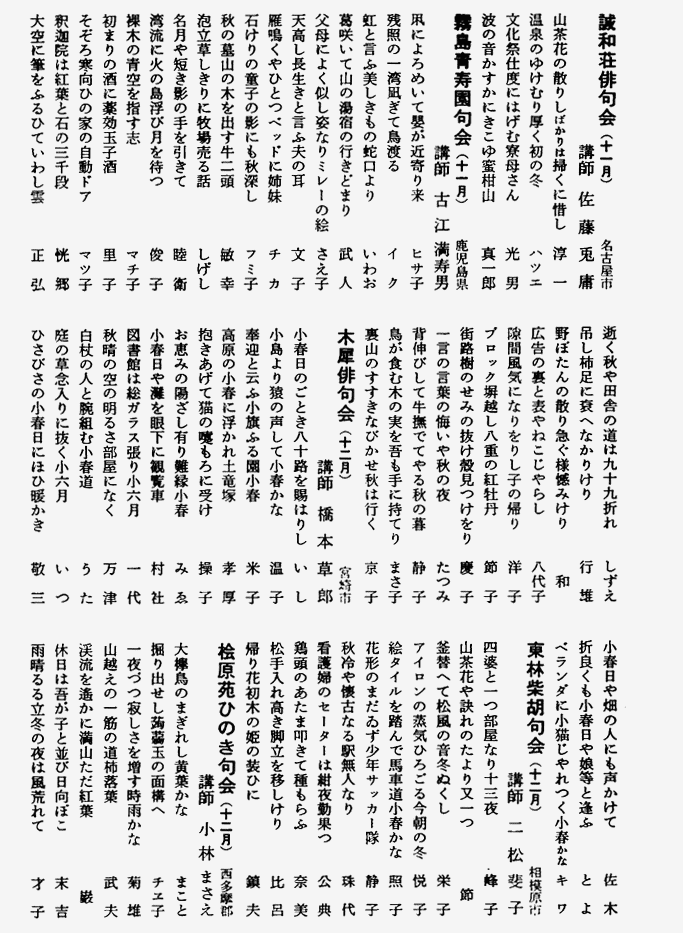 誠和荘俳句会（十一月） 名古屋市
講師 佐藤 兎庸
山茶花の散りしばかりは掃くに惜し 淳一
温泉のゆけむり厚く初の冬 ハツエ
文化祭仕度にはげむ寮母さん 光男
波の音かすかにきこゆ蜜柑山 真一郎
霧島青寿園句会（十一月） 鹿児島県
講師 古江 満寿男
凩によろめいて嬰が近寄り来 ヒサ子
残照の一湾凪ぎて鳥渡る イク
虹と言ふ美しきもの蛇口より いわお
葛咲いて山の湯宿の行きどまり 武人
父母によく似し姿なりミレーの絵 さえ子
天高し長生きと言ふ夫の耳 文子
雁鳴くやひとつベッドに姉妹 チカ
石けりの童子の影にも秋深し フミ子
秋の墓山の木を出す牛二頭 敏幸
泡立草しきりに牧場売る話 しげし
名月や短き影の手を引きて 睦衛
湾流に火の島浮び月を待つ 俊子
裸木の青空を指す志 マチ子
初まりの酒に薬効玉子酒 里子
そぞろ寒向ひの家の自動ドア マツ子
釈迦院は紅葉と石の三千段 恍郷
大空に筆をふるひていわし雲 正弘
逝く秋や田舎の道は九十九折れ しずえ
吊し柿足に衰へなかりけり 行雄
野ぼたんの散り急ぐ様憾みけり 和
広告の裏と表やねこじやらし 八代子
隙間風気になりをりし子の帰り 洋子
ブロック塀越し八重の紅牡丹 節子
街路樹のせみの抜け殻見つけをり 慶子
一言の言葉の悔いや秋の夜 たつみ
背伸びして牛撫でてやる秋の暮 静子
鳥が食む木の実を吾も手に持てり まさ子
裏山のすすきなびかせ秋は行く 京子
木犀俳句会（十二月） 宮崎市
講師 橋本 草郎
小春日のごとき八十路を賜はりし いし
小島より猿の声して小春かな 温子
奉迎と云ふ小旗ふる園小春 米子
高原の小春に浮かれ土竜塚 孝厚
抱きあげて猫の嚏もろに受け 操子
お恵みの陽ざし有り難縁小春 みゑ
小春日や灘を眼下に観覧車 村社
図書館は総ガラス張り小六月 一代
秋晴の空の明るさ部屋になく 万津
白杖の人と腕組む小春道 うた
庭の草念入りに抜く小六月 いつ
ひさびさの小春日にほひ暖かき 敬三
小春日や畑の人にも声かけて 佐木
折良くも小春日や娘等と逢ふ とよ
ベランダに小猫じやれつく小春かな キワ
東林柴胡句会（十二月） 相模原市
講師 二松 斐子
四婆と一つ部屋なり十三夜 峰子
山茶花や訣れのたより又一つ 節
釜替へて松風の音冬ぬくし 栄子
アイロンの蒸気ひろごる今朝の冬 悦子
絵タイルを踏んで馬車道小春かな 照子
花形のまだゐず少年サッカー隊 静子
秋冷や懐古なる駅無人なり 珠代
看護婦のセーターは紺夜勤果つ 公典
鶏頭のあたま叩きて種もらふ 奈美
松手入れ高き脚立を移しけり 比呂
帰り花初木の姫の装ひに 鎮夫
桧原苑ひのき句会（十二月） 西多摩郡
講師 小林 まさえ
大欅鳥のまぎれし黄葉かな まこと
掘り出せし蒟蒻玉の面構へ チヱ子
一夜づつ寂しさを増す時雨かな 菊雄
山越えの一筋の道柿落葉 武夫
渓流を遙かに満山ただ紅葉 巌
休日は吾が子と並び日向ぼこ 末吉
雨晴るる立冬の夜は風荒れて 才子